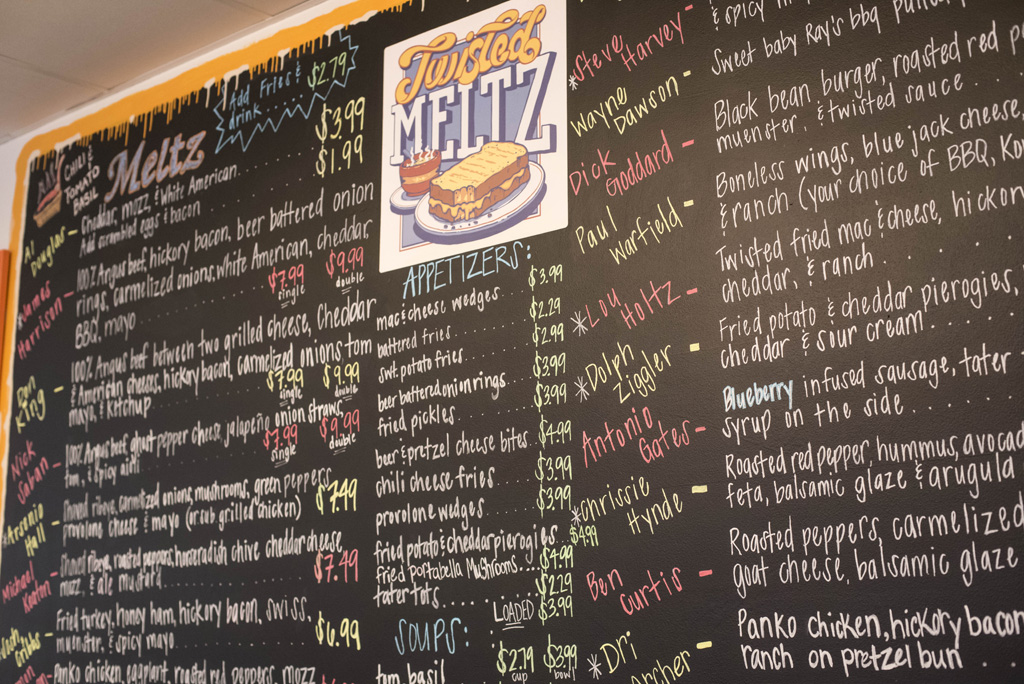 Add Fries &
drink $2.79
CHILI &
TOMATO
BASIL
Meltz
$3.99
$1.99
Al Douglas - Cheddar, mozz, & White American
Add scrambled eggs & bacon
*James Harrison - 100% Angus beef, hickory bacon, beer battered onion
rings, carmelized onions, white American, cheddar
BBQ, mayo
$7.99 single $9.99 double
Don King - 100% Angus beef between two grilled cheese, cheddar
& American cheeses, hickory bacon, carmelized onions tom
mayo, & ketchup
$7.99 single $9.99 double
Nick Saban - 100% Angus beef, ghost pepper cheese, jalapeño onion straws
tom, & spicy aioli
$7.99 single $9.99 double
*Arsenio Hall - Shaved ribeye, carmelized onions, mushrooms, green peppers
provolone cheese & mayo (or sub grilled chicken) $7.49
Michael Keaton - Shaved ribeye, roasted peppers, horseradish chive cheddar cheese
mozz, & ale mustard $7.49
Gibbs - Fried turkey, honey ham, hickory bacon, swiss,
muenster, & spicy mayo $6.99
Panko chicken, eggplant, roasted red peppers, mozz
Twisted
MELTZ
APPETIZERS:
mac & cheese wedges $3.99
battered fries $2.29
swt. potato fries $2.99
beer battered onion rings $3.99
fried pickles $3.99
beer & pretzel cheese bites $4.99
chili cheese fries $3.99
provolone wedges $3.99
fried potato & cheddar pierogies $4.99
fried portabella mushrooms $4.99
tater tots $2.29
LOADED $3.99
SOUPS:
$2.79 cup $3.99 bowl
tom basil
*Steve Harvey -
& spicy
Sweet baby Ray's bbq
Wayne Dawson - Black bean burger, roasted red
muenster, & twisted sauce
Dick Goddard - Boneless wings, blue jack cheese,
& ranch (your choice of BBQ,
Paul Warfield - Twisted fried mac & cheese,
cheddar, & ranch
*Lou Holtz - Fried potato & cheddar pierogies,
cheddar & sour cream
*Dolph Ziggler - Blueberry infused sausage, tater
syrup on the side
Antonio Gates - Roasted red pepper hummus,
feta, balsamic glaze & arugula
*Chrissie Hynde - Roasted peppers, carmelized
goat cheese, balsamic glaze
Ben Curtis - Panko chicken, hickory bacon
ranch on pretzel bun
*Dri Archer -